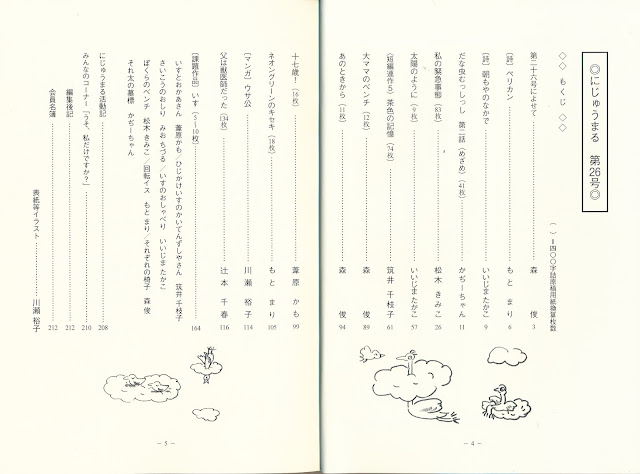 ◎にじゅうまる 第26号◎
◇◇ もくじ ◇◇
( )＝四〇〇字詰原稿用紙換算枚数
第二十六号によせて 森 俊 3
〔詩〕ペリカン もと まり 6
〔詩〕朝もやのなかで いいじまたかこ 9
だな虫むっしっし 第二話（めざめ）（41枚） かぢーちゃん 11
私の緊急事態（83枚） 松木 きみこ 26
太陽のように（9枚） いいじまたかこ 57
（短編連作5）茶色の記憶（74枚） 筑井 千枝子 61
大ママのベンチ（12枚） 森 俊 89
あのときから（11枚） 森 俊 94
－4－
十七歳！（16枚） 葦原 かも 99
ネオングリーンのキセキ（18枚） もと まり 105
〔マンガ〕ウサ公 川瀬 裕子 114
父は獣医師だった（34枚） 辻本 千春 116
〔課題作品〕いす（5～10枚） 164
いすとおかあさん 葦原かも／ひじかけいすのかいてんずしやさん 筑井 千枝子
さいこうのおしり みおちづる／いすのおしゃべり いいじまたかこ
ぼくらのベンチ 松木 きみこ／回転イス もと まり／それぞれの椅子 森 俊
それ太の墓標 かぢーちゃん
にじゅうまる活動記 208
みんなのコーナー「うそ、私だけですか？」 210
編集後記 212
会員名簿 212
表紙等イラスト 川瀬 裕子
－5－